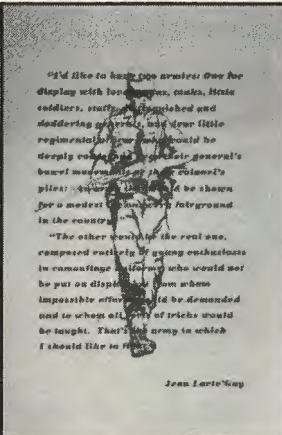 "I'd like to have two armies: One for
display with tanks, little
soldiers, and
doddering generals, and dear little
regimental would be
deeply their general's
bowel movements or their colonel's
piles: be shown
for a modest fairground
in the country.
"The other would be the real one,
composed entirely of young enthusiasts
in camouflage uniforms who would not
be put on display from whom
impossible efforts would be demanded
and to whom all of tricks would
be taught. That's the army in which
I should like to
Jean Larteguy